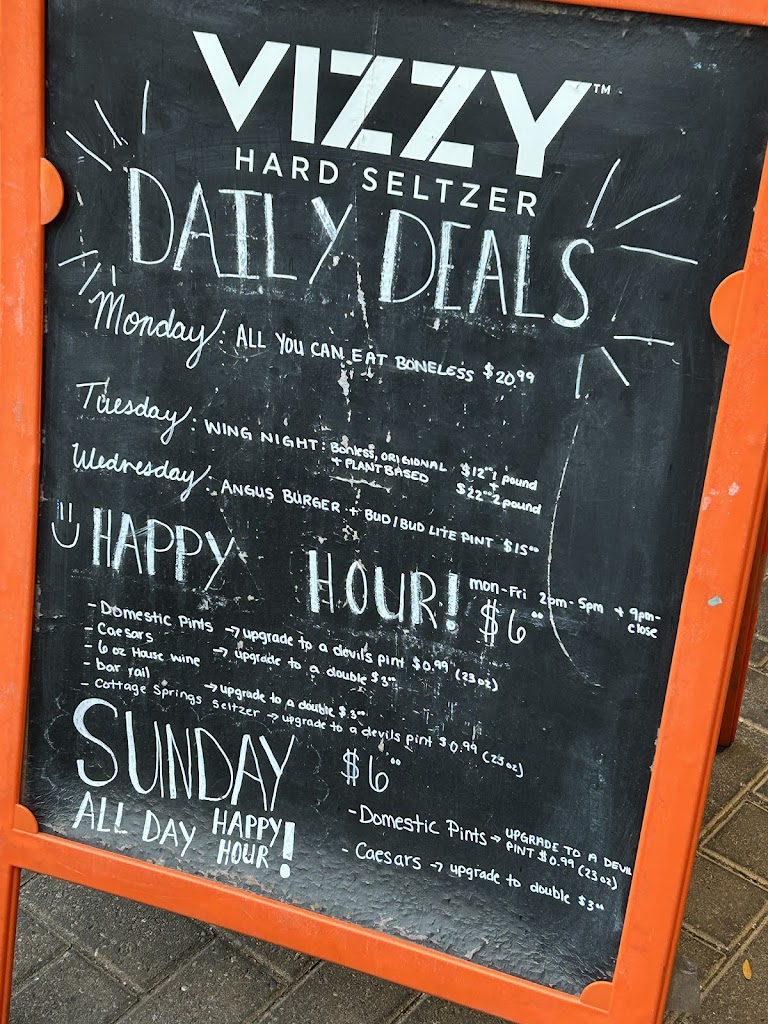 VIZZY™
HARD SELTZER
DAILY DEALS
Monday: ALL YOU CAN EAT BONELESS $20.99
Tuesday: WING NIGHT: Bonless, ORIGIONAL $12⁰⁰ 1 pound
+ PLANT BASED +
$22⁰⁰ 2 pound
Wednesday: ANGUS BURGER + BUD/BUD LITE PINT $15⁰⁰
HAPPY HOUR! mon-Fri 2pm-5pm + 9pm-
close
$6⁰⁰
- Domestic Pints → upgrade to a devils pint $0.99 (23oz)
- Caesars → upgrade to a double $3⁰⁰
- 6 oz House wine
- bar rail → upgrade to a double $3⁰⁰
- Cottage Springs Seltzer → upgrade to a devils pint $0.99 (23oz)
SUNDAY $6⁰⁰
ALL DAY HAPPY
HOUR!
- Domestic Pints → UPGRADE TO A DEVIL
PINT $0.99 (23oz)
- Caesars → upgrade to double $3⁰⁰